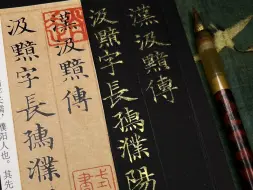 漢汲黯傳
汲黯字長孺濮陽
漢汲黯傳
汲黯字長孺濮
濮阳人也。其先